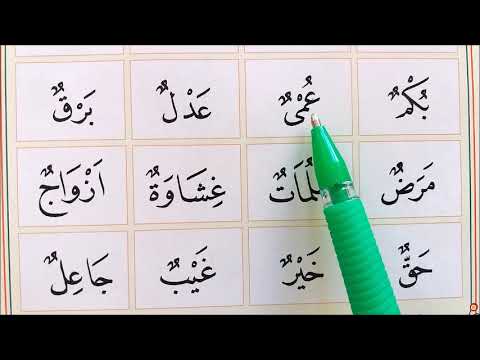 بُكْمٌ عُمْىٌ عَدْلٌ بَرْقٌ
مَرَضٌ غِشَاوَةٌ اَزْوَاجٌ
حَقٌّ خَيْرٌ غَيْبٌ جَاعِلٌ